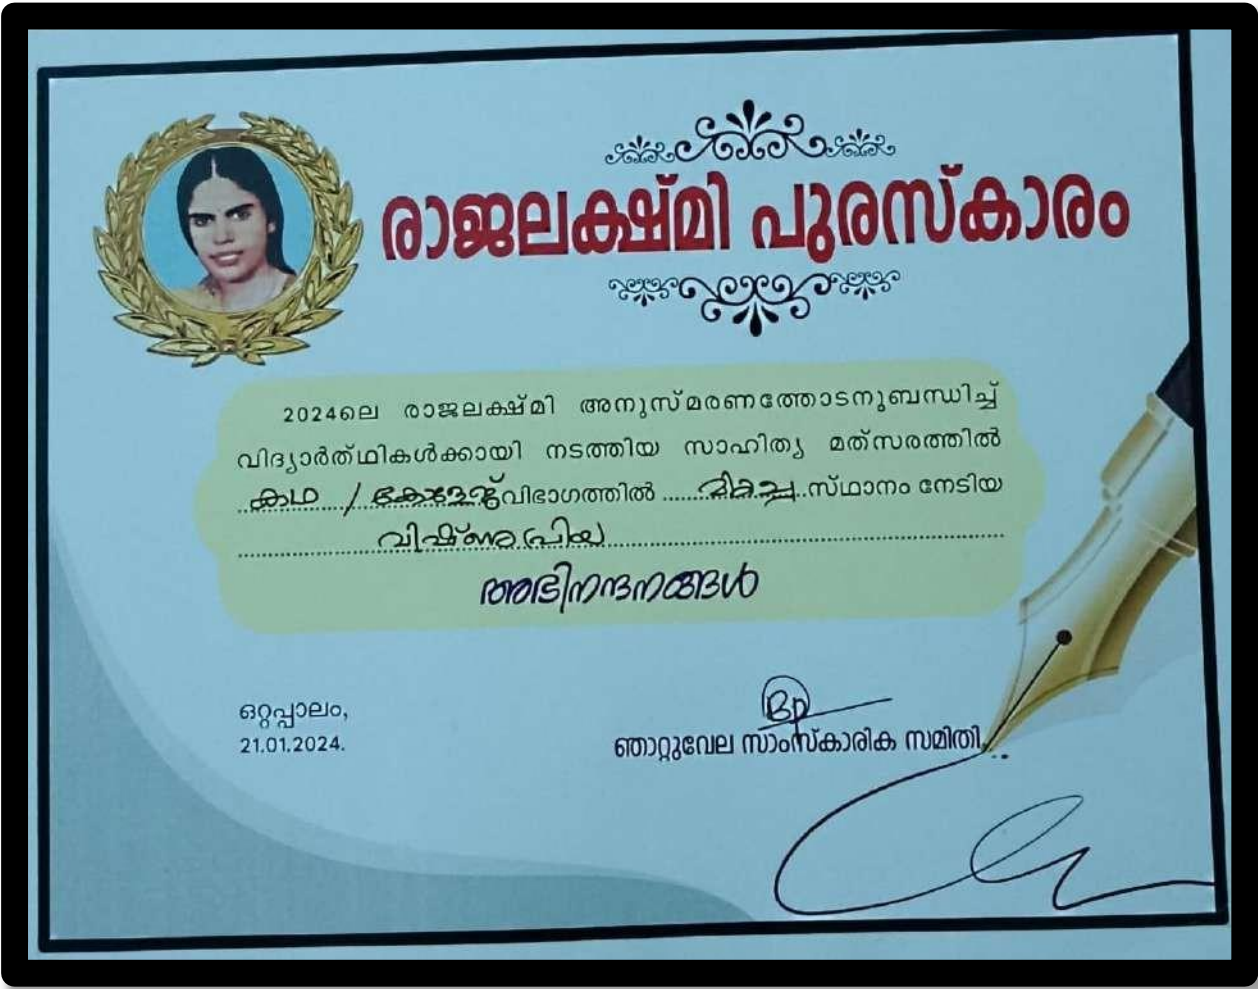 രാജലക്ഷ്മി പുരസ്കാരം
2024ലെ രാജലക്ഷ്മി അനുസ്മരണത്തോടനുബന്ധിച്ച്
വിദ്യാർത്ഥികൾക്കായി നടത്തിയ സാഹിത്യ മത്സരത്തിൽ
കഥ / കോളേജ് വിഭാഗത്തിൽ ...... മികച്ച ..സ്ഥാനം നേടിയ
വിഷ്ണുപ്രിയ
അഭിനന്ദനങ്ങൾ
ഒറ്റപ്പാലം,
21.01.2024.
ഞാറ്റുവേല സാംസ്കാരിക സമിതി